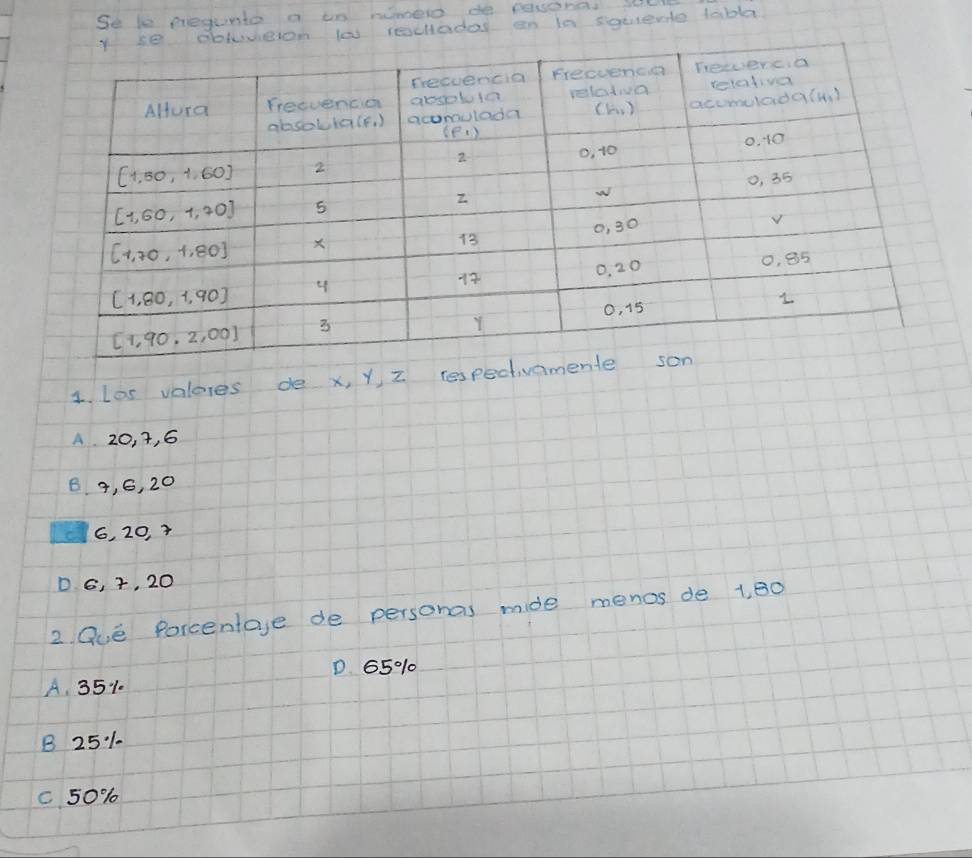 Se le pregunto a un número de personas
y se obtuvieron los resultados en la siguiente tabla
Altura | Frecuencia absoluta (f.) | Frecuencia absoluta acomulada (F1) | Frecuencia relativa (h.) | Frecuencia relativa acumulada (H1)
[1,50, 1,60] | 2 | 2 | 0,10 | 0,10
[1,60, 1,70] | 5 | z | w | 0,35
[1,70, 1,80] | x | 13 | 0,30 | v
[1,80, 1,90] | 4 | 17 | 0,20 | 0,85
[1,90, 2,00] | 3 | y | 0,15 | 1
1. Los valores de x, y, z respectivamente son
A. 20, 7, 6
B. 7, 6, 20
C 6, 20, 7
D. 6, 7, 20
2. Qué Porcentaje de personas mide menos de 1,80
A. 35%
D. 65%
B 25%
C 50%